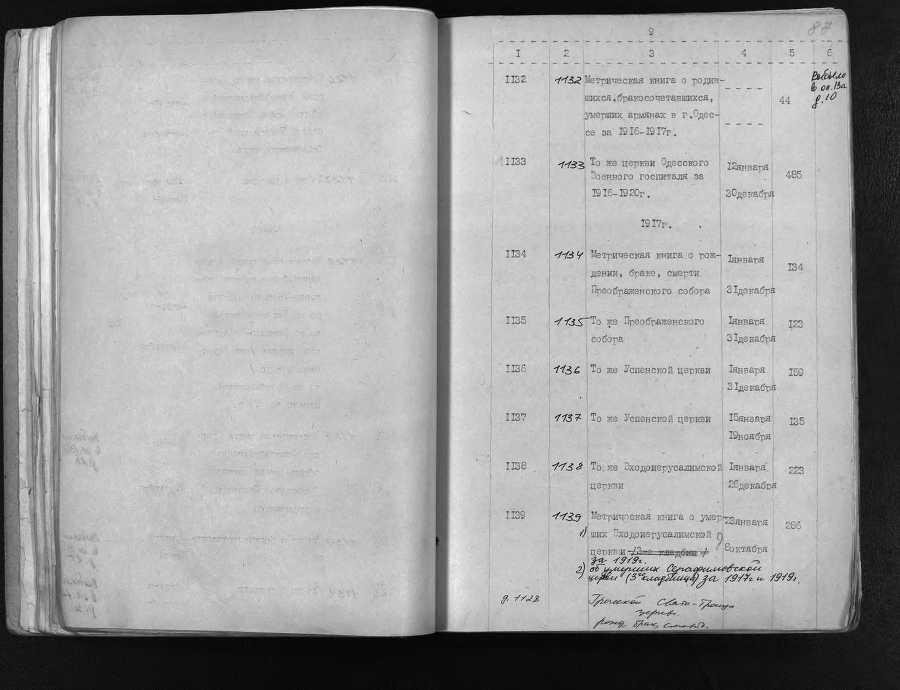 9
87
I 2 3 4 5 6
II32 1132 Метрическая книга о родив-
шихся, бракосочетавшихся, 44
умерших армянах в г.Одес-
се за 1916-1917г.
в оп.13а
д.10
II33 1133 То же церкви Одесского 12января
Военного госпиталя за 485
1916-1920г. 30декабря
1917г.
II34 1134 Метрическая книга о рож- 1января
дении, браке, смерти 134
Преображенского собора 31декабря
II35 1135 То же Преображенского 1января 123
собора 31декабря
II36 1136 То же Успенской церкви 1января 159
31декабря
II37 1137 То же Успенской церкви 15января 135
19ноября
II38 1138 То же Входоиерусалимской 1января 223
церкви 26декабря
II39 1139 Метрическая книга о умер- 23января 286
1) ших Входоиерусалимской
церкви /3-е кладбище/ 8октября
за 1919г.
2) об умерших Серафимовской
церкви (3е кладбище) за 1917г и 1919г.
д. 1128 Свято-Троицк
церкви
рожд брак, смерть.